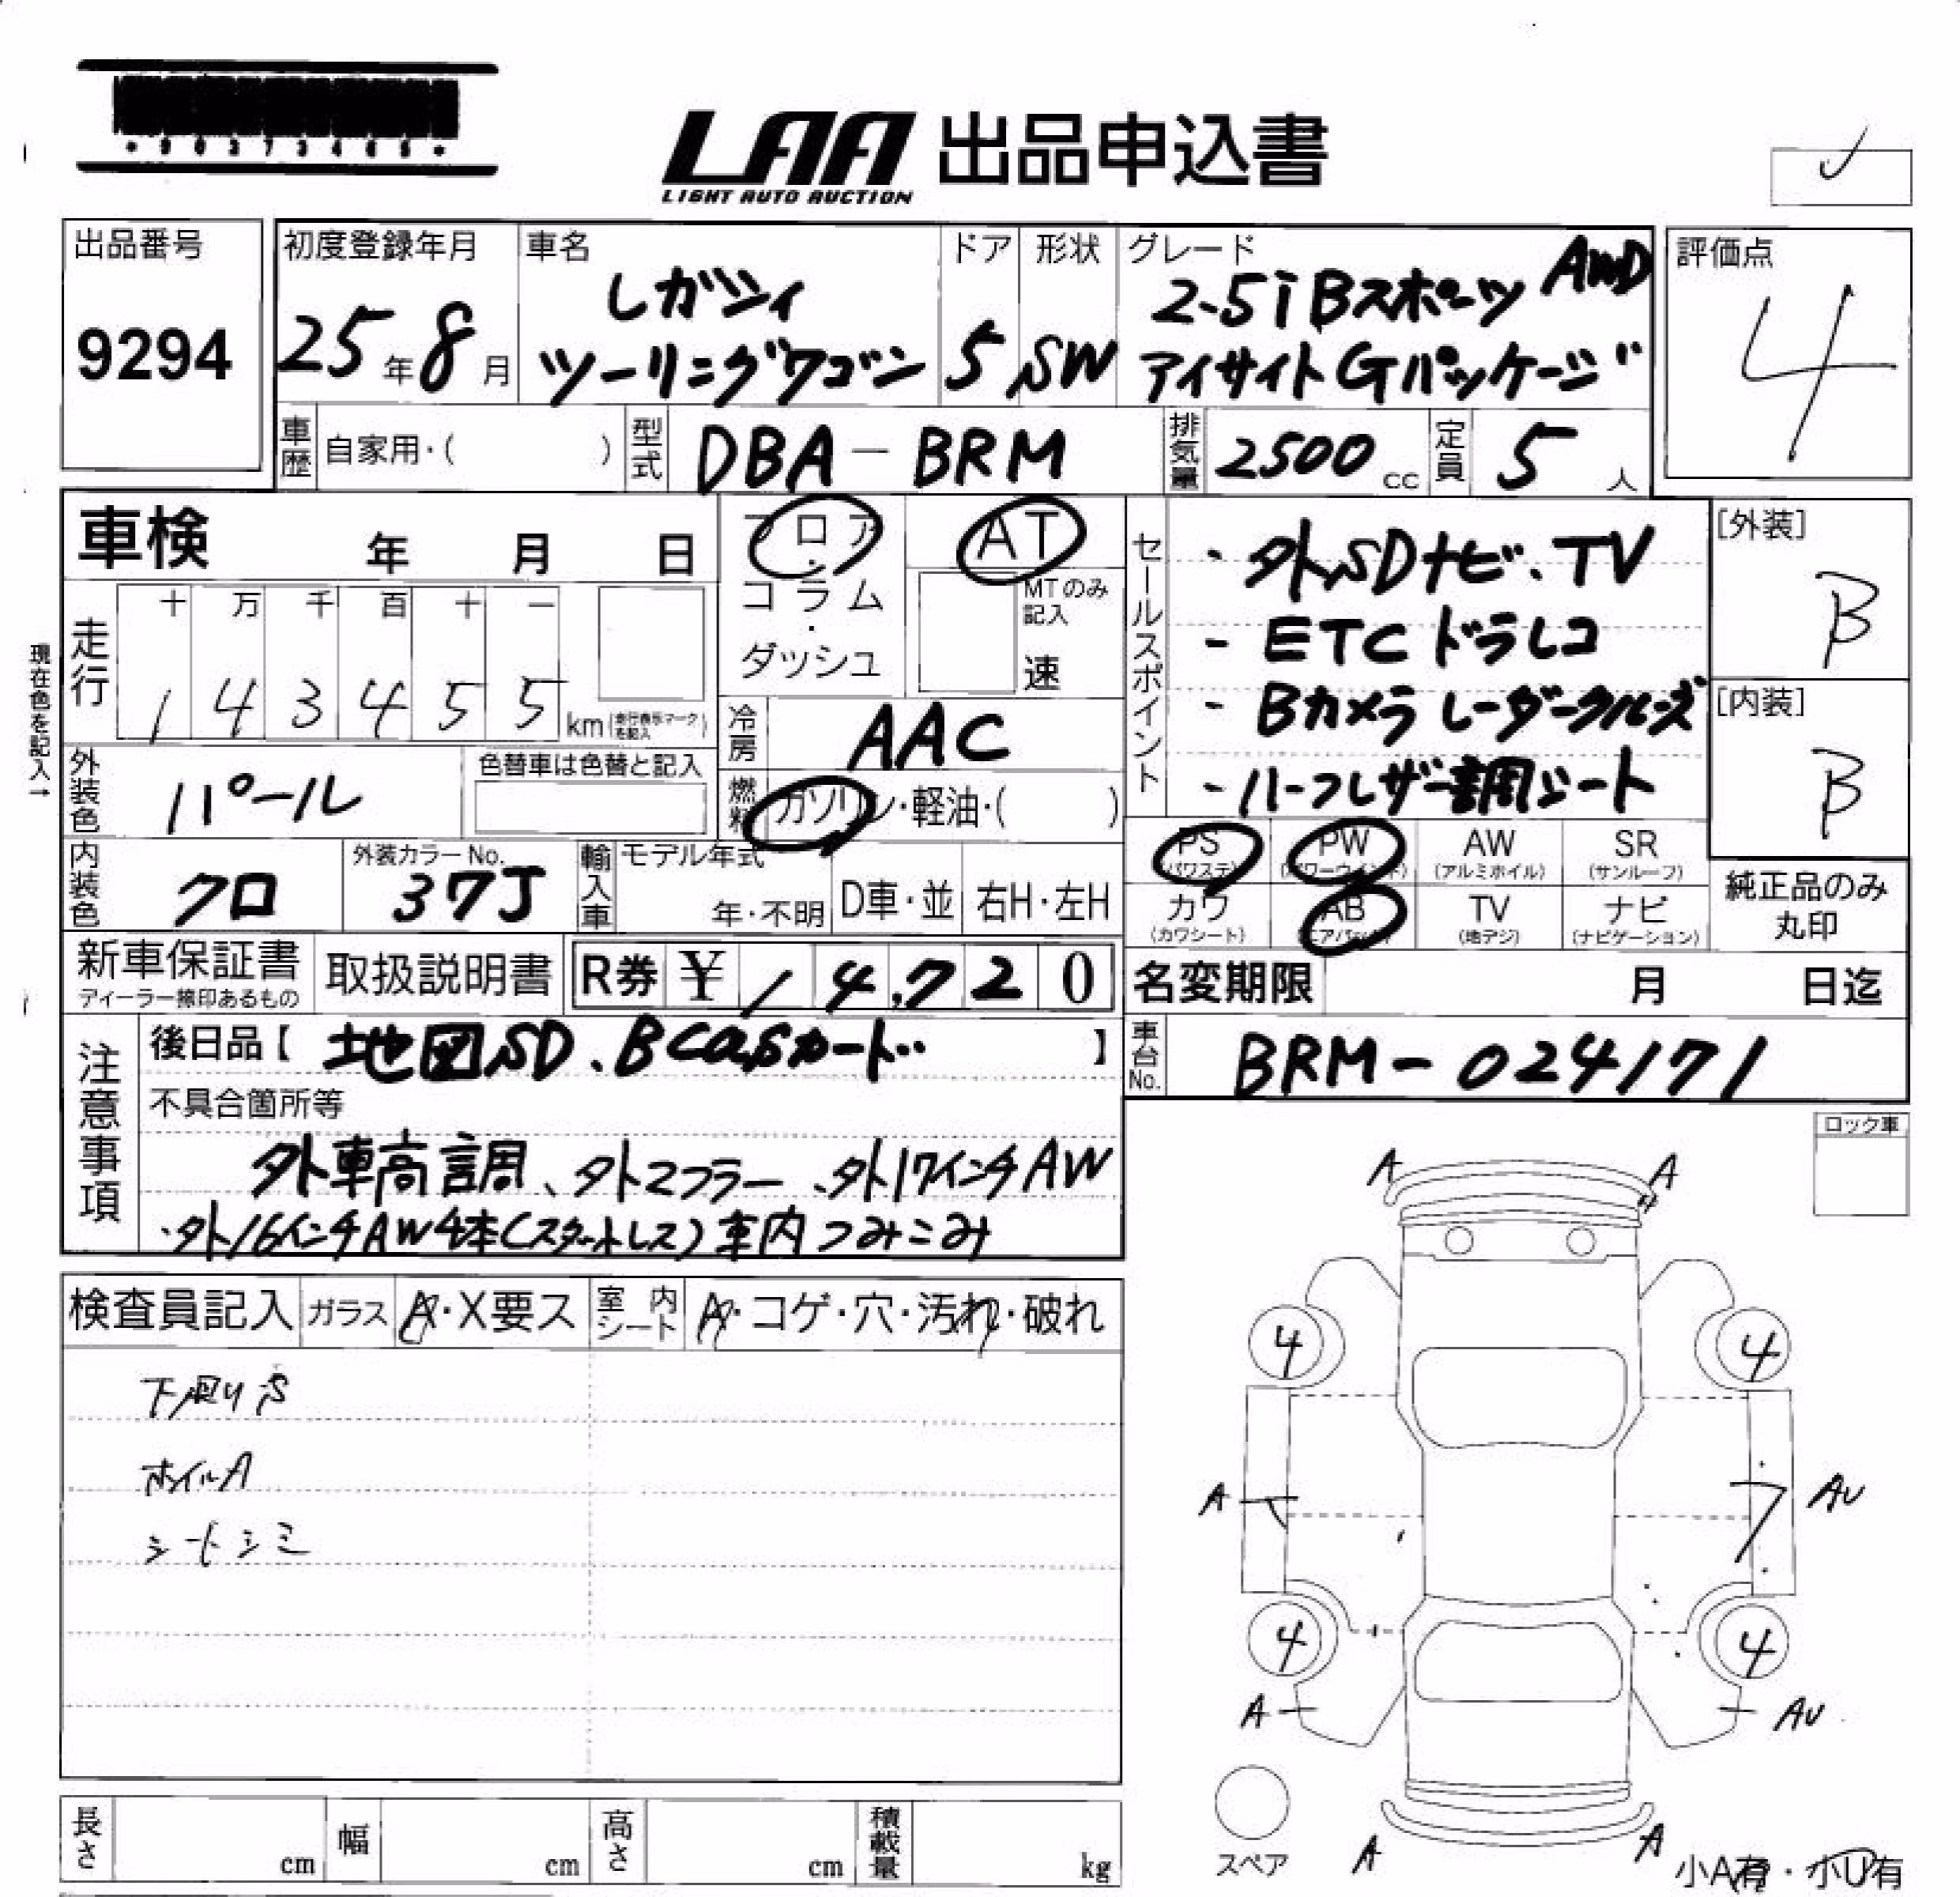 ・90373465・
LAA 出品申込書
LIGHT AUTO AUCTION
出品番号
9294
初度登録年月
25年8月
車名
レガシィ
ツーリングワゴン
ドア
5
形状
SW
グレード
2.5i Bスポーツ AWD
アイサイト Gパッケージ
評価点
4
車歴 自家用・( )
型式 DBA-BRM
排気量 2500 cc
定員 5 人
車検 年 月 日
フロア・コラム・ダッシュ
AT
MTのみ記入
速
走行
十 万 千 百 十 一
1 4 3 4 5 5 km(走行表示マークを記入)
現在色を記入→
冷房 AAC
燃料 ガソリン・軽油・( )
外装色 パール
色替車は色替と記入
内装色 クロ
外装カラーNo. 37J
輸入車
モデル年式
年・不明
D車・並
右H・左H
セールスポイント
・外SDナビ、TV
- ETC ドラレコ
- Bカメラ レーダークルーズ
- ハーフレザー調シート
[外装]
B
[内装]
B
PS (パワステ)
PW (パワーウインド)
AW (アルミホイル)
SR (サンルーフ)
カワ (カワシート)
AB (エアバッグ)
TV (地デジ)
ナビ (ナビゲーション)
純正品のみ
丸印
新車保証書
ディーラー捺印あるもの
取扱説明書
R券 ¥ 1 4,7 2 0
名変期限 月 日迄
車台No. BRM-024171
注意事項
後日品【 地図SD、Bcasカード 】
不具合箇所等
外車高調、外マフラー、外17インチAW
・外16インチAW4本(スタットレス)車内つみこみ
ロック車
検査員記入
ガラス A・X要ス
室内シート A・コゲ・穴・汚れ・破れ
下廻りS
ホイルA
シートシミ
A A
4 4
A AU
4 4
A AU
A A
スペア
小A有・小U有
長さ cm
幅 cm
高さ cm
積載量 kg